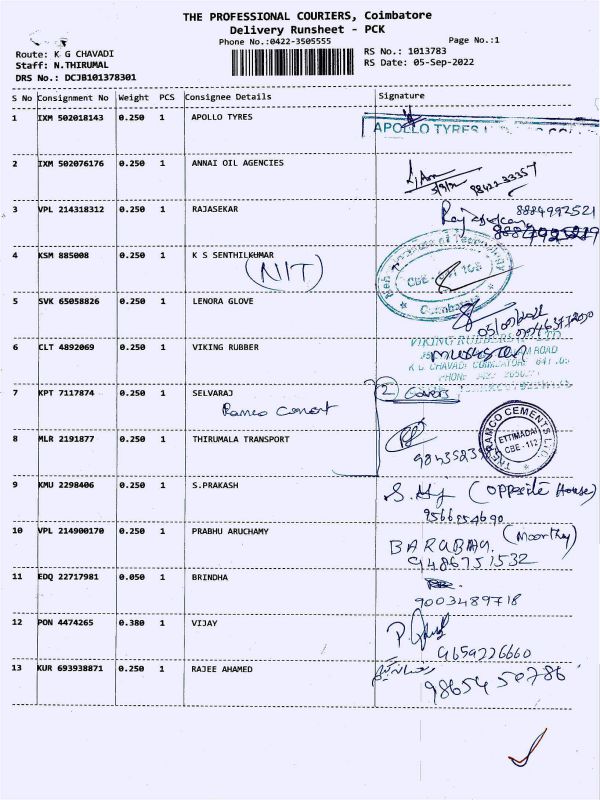 THE PROFESSIONAL COURIERS, Coimbatore
Delivery Runsheet - PCK
Phone No.:0422-3505555
Page No.:1
Route: K G CHAVADI
RS No.: 1013783
Staff: N.THIRUMAL
RS Date: 05-Sep-2022
DRS No.: DCJB101378301
S No Consignment No Weight PCS Consignee Details Signature
1 IXM 502018143 0.250 1 APOLLO TYRES
APOLLO TYRES
2 IXM 502076176 0.250 1 ANNAI OIL AGENCIES
3 VPL 214318312 0.250 1 RAJASEKAR
8884992521
4 KSM 885008 0.250 1 K S SENTHILKUMAR
(NIT)
Coimbatore
5 SVK 65058826 0.250 1 LENORA GLOVE
6 CLT 4892069 0.250 1 VIKING RUBBER
VIKING RUBBERS
7 KPT 7117874 0.250 1 SELVARAJ
Ramco Cement
(2) Covers
8 MLR 2191877 0.250 1 THIRUMALA TRANSPORT
THE RAMCO CEMENTS LTD.
ETTIMADAI
CBE - 112
9 KMU 2298406 0.250 1 S.PRAKASH
(opposite House)
9566754690
10 VPL 214900170 0.250 1 PRABHU ARUCHAMY
(Moorthy)
9486751532
11 EDQ 22717981 0.050 1 BRINDHA
9003489718
12 PON 4474265 0.380 1 VIJAY
9659226660
13 KUR 693938871 0.250 1 RAJEE AHAMED
9865450786